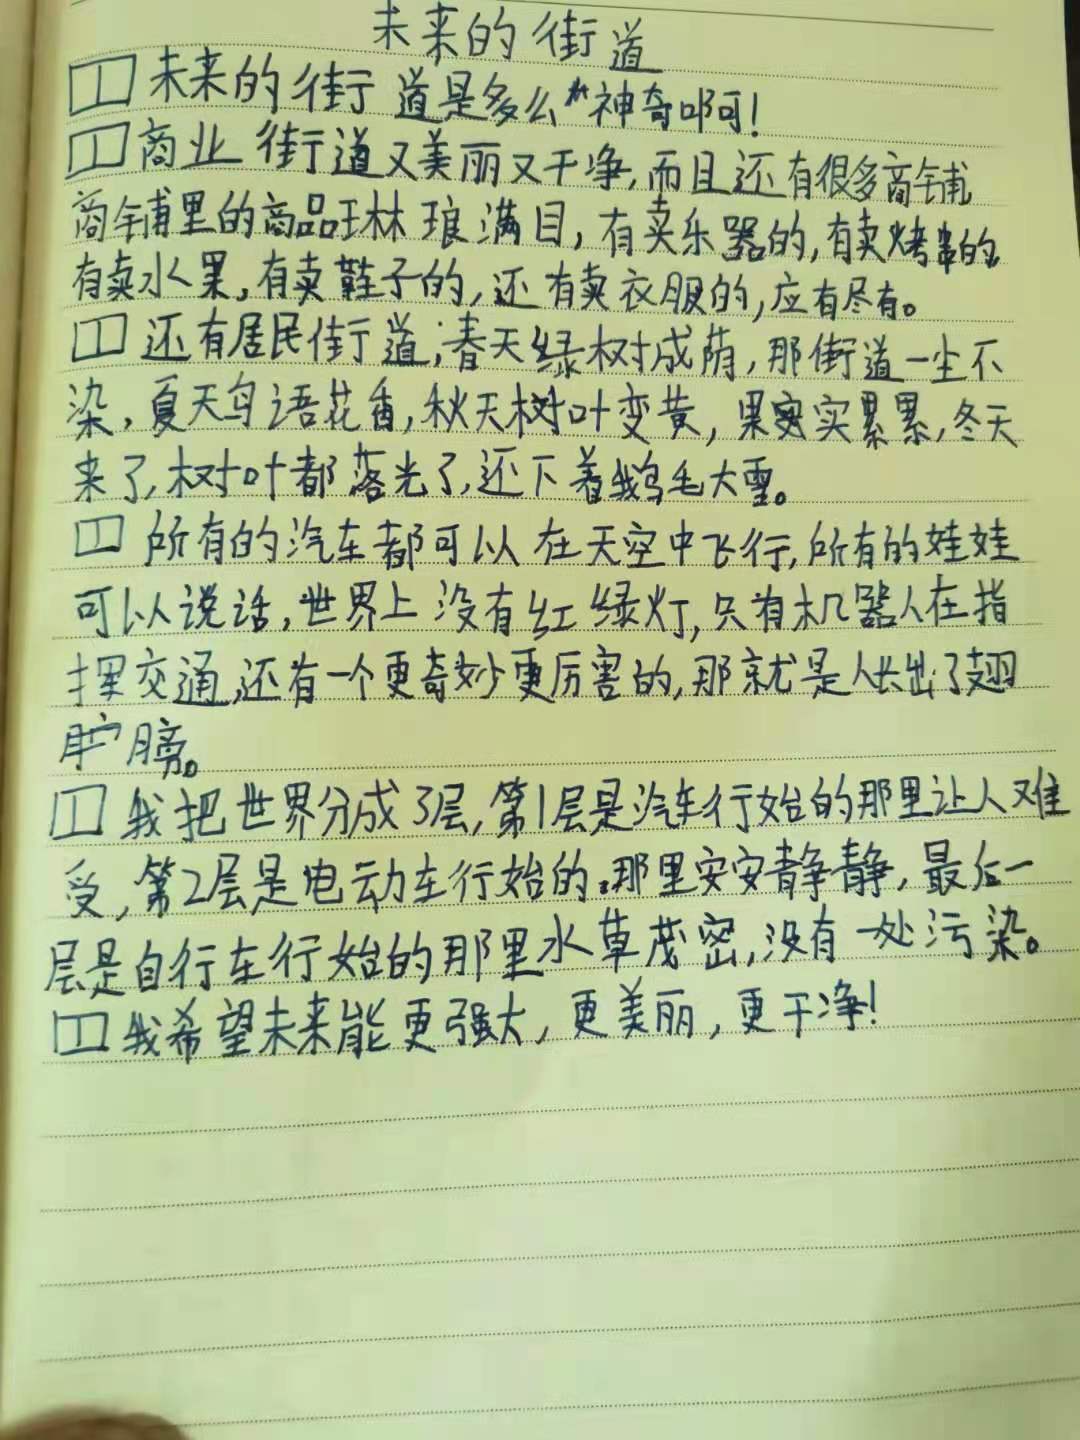 未来的街道
未来的街道是多么神奇啊!
商业街道又美丽又干净,而且还有很多商铺
商铺里的商品琳琅满目,有卖乐器的,有卖烤串的
有卖水果,有卖鞋子的,还有卖衣服的,应有尽有。
还有居民街道,春天绿树成荫,那街道一尘不
染,夏天鸟语花香,秋天树叶变黄,果实累累,冬天
来了,树叶都落光了,还下着鹅毛大雪。
所有的汽车都可以在天空中飞行,所有的娃娃
可以说话,世界上没有红绿灯,只有机器人在指
挥交通,还有一个更奇妙更厉害的,那就是人长出了翅
膀。
我把世界分成3层,第1层是汽车行始的那里让人难
受,第2层是电动车行始的,那里安安静静,最后一
层是自行车行始的那里水草茂密,没有一处污染。
我希望未来能更强大,更美丽,更干净!